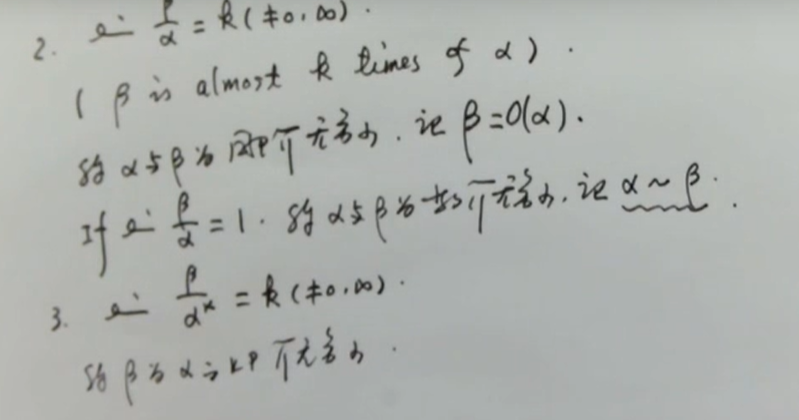 2. lim β/α = k(≠0,∞).
(β is almost k times of α).
称α与β为同阶无穷小,记β=O(α).
If lim β/α = 1. 称α与β为等价无穷小,记α~β.
3. lim β/αᵏ = k(≠0,∞).
称β为α之k阶无穷小.